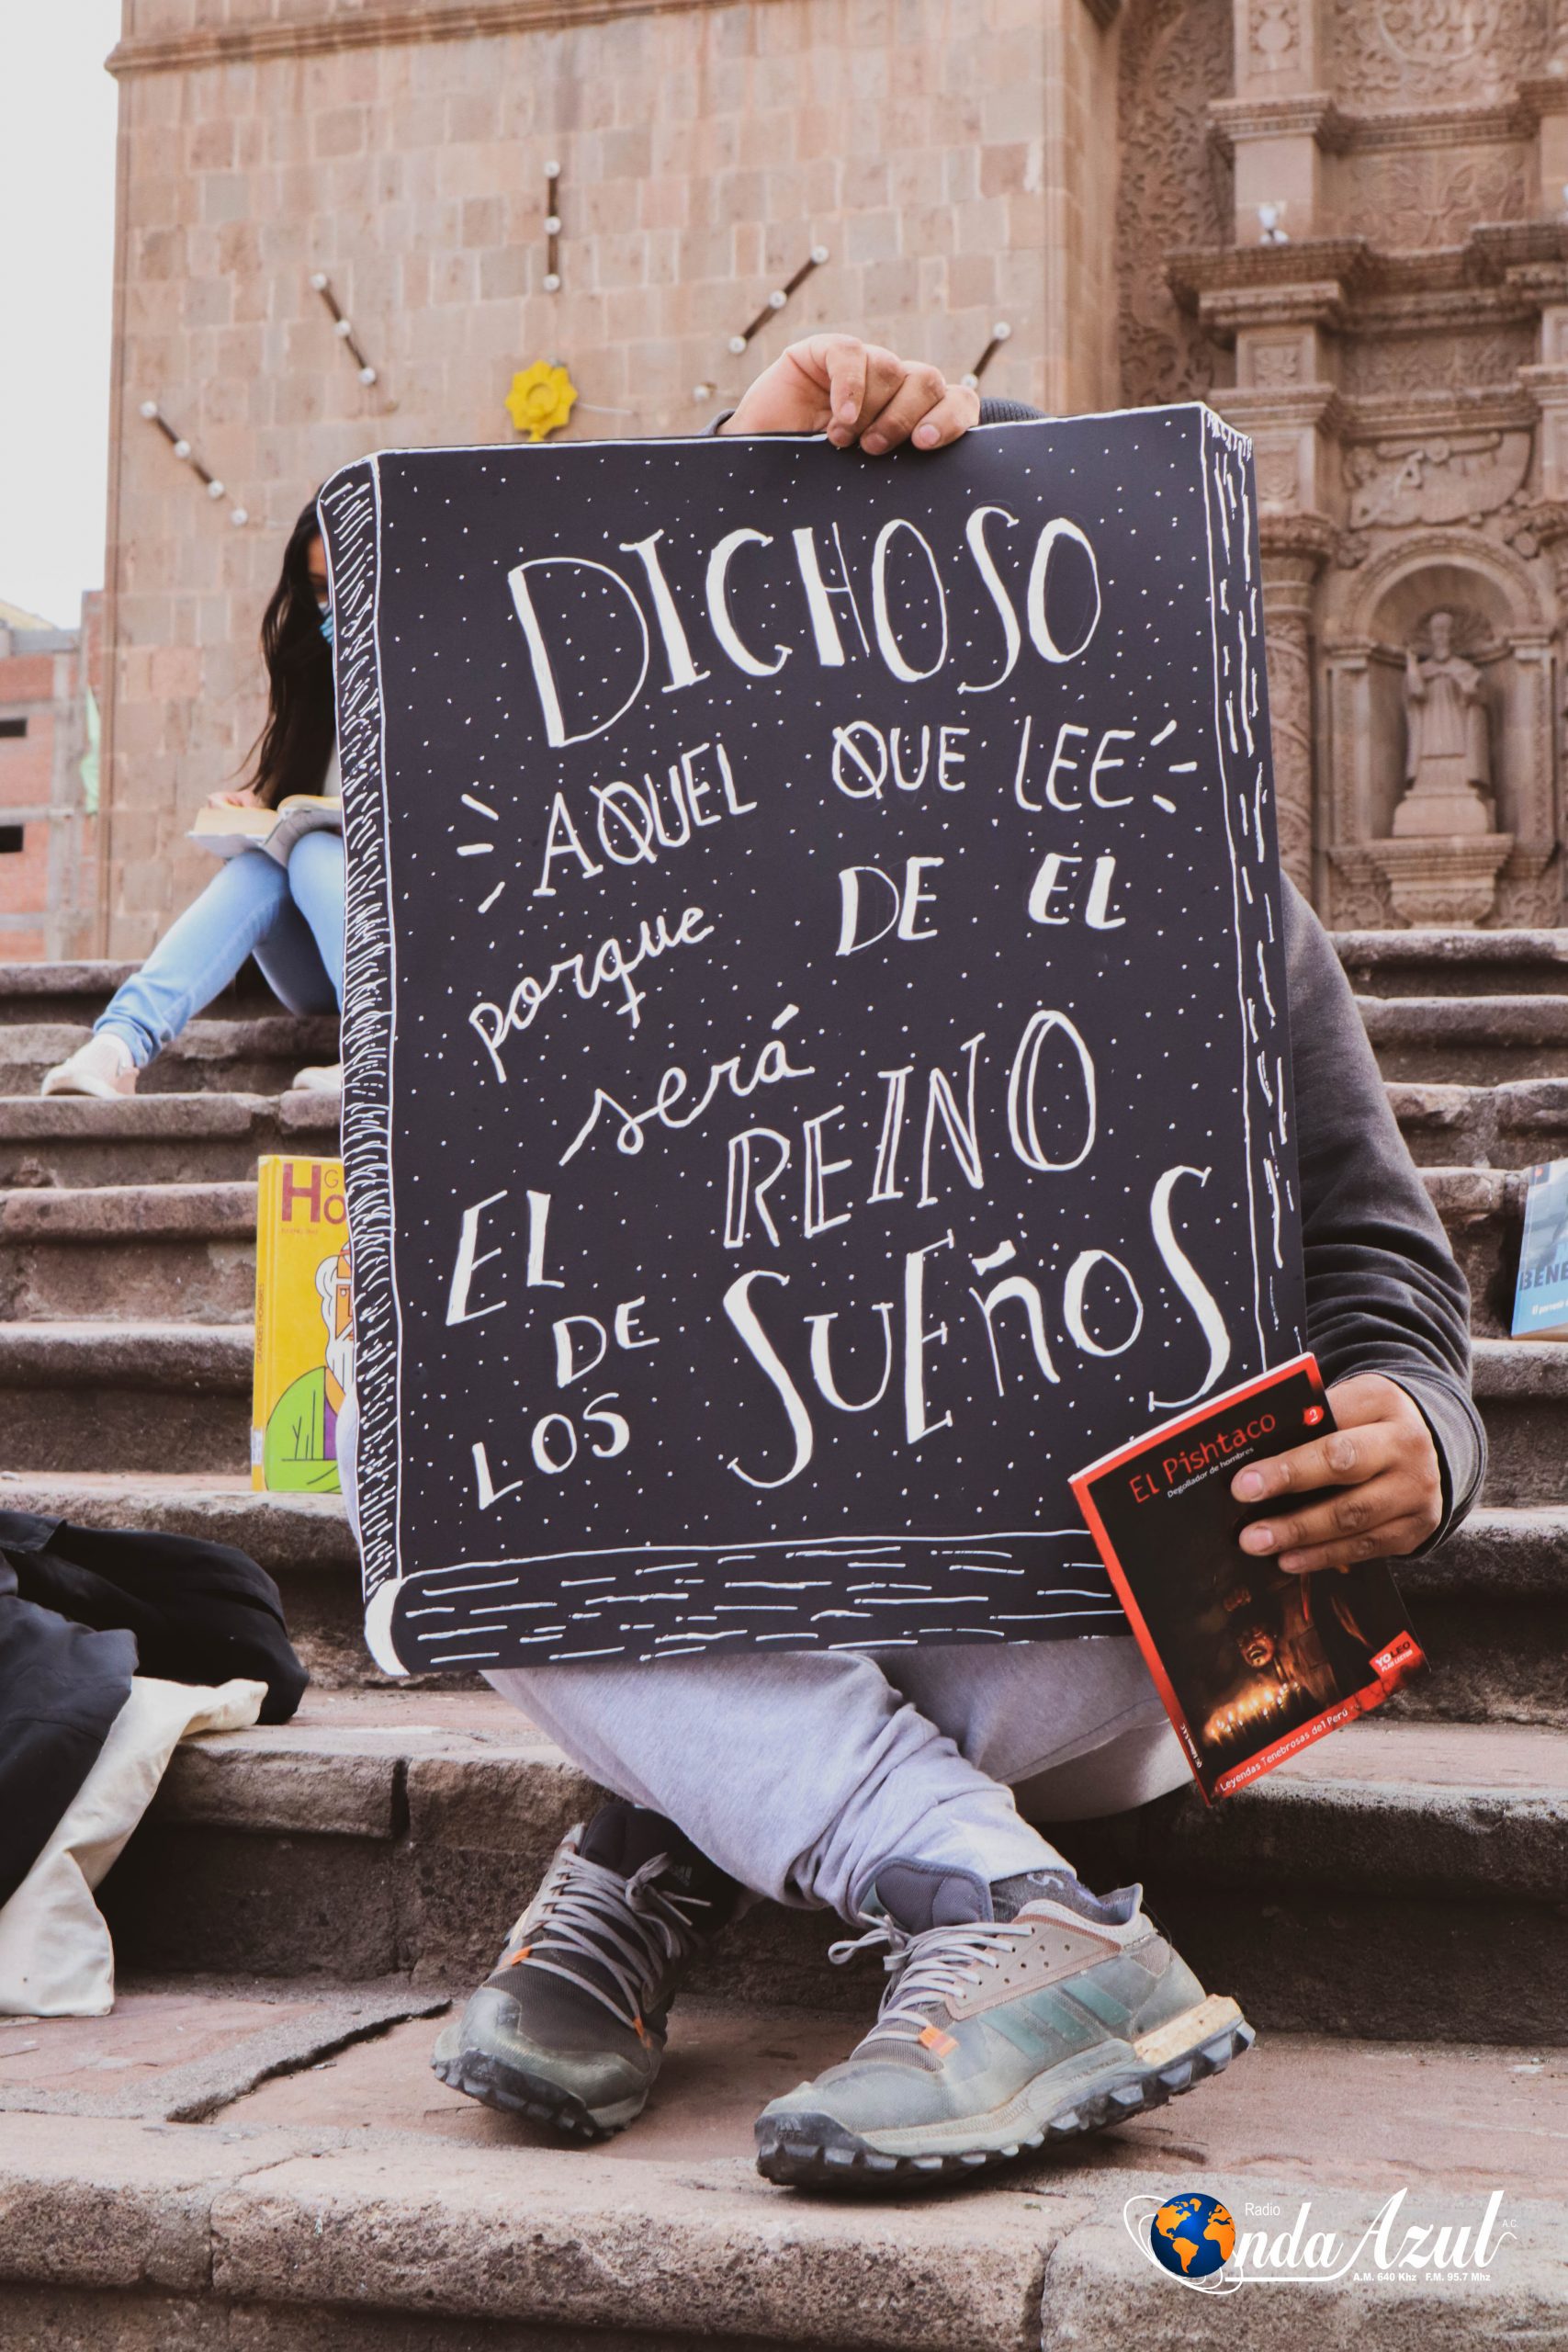 DICHOSO
AQUEL QUE LEE
porque DE EL
será
EL REINO
DE
LOS SUEÑOS
El Pishtaco
Degollador de hombres
2
YO LEO
PLAN LECTOR
Leyendas Tenebrosas del Perú
GRANDES HOMBRES
Ho
BENE
Radio
Onda Azul A.C.
A.M. 640 Khz F.M. 95.7 Mhz